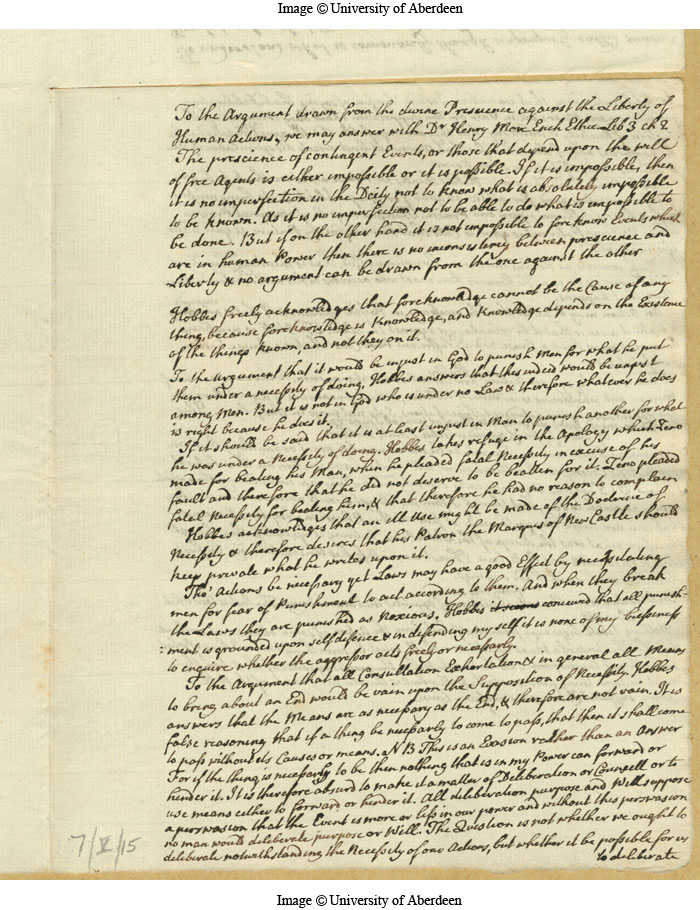 Image © University of Aberdeen
To the Argument drawn from the divine Prescience against the Liberty of
Human Actions, we may answer with Dr Henry More Ench Ethic Lib 3 ch 2
The prescience of contingent Events, or those that depend upon the will
of free Agents is either impossible or it is possible. If it is impossible, then
it is no imperfection in the Deity not to know what is absolutely impossible
to be known. As it is no imperfection not to be able to do what is impossible to
be done. But if on the other hand it is not impossible to foreknow Events which
are in human Power then there is no inconsistency between prescience and
Liberty & no argument can be drawn from the one against the other
Hobbes freely acknowledges that foreknowledge cannot be the Cause of any
thing, because foreknowledge is Knowledge, and Knowledge depends on the Existence
of the things known, and not they on it.
To the Argument that it would be unjust in God to punish Men for what he put
them under a necessity of doing, Hobbes answers that this indeed would be unjust
among Men. But it is not in God who is under no Law & therefore whatever he does
is right because he does it.
If it should be said that it is at least unjust in Man to punish another for what
he was under a Necessity of doing. Hobbes takes refuge in the Apology which Zeno
made for beating his Man, when he pleaded fatal Necessity in excuse of his
fault and therefore that he did not deserve to be beaten for it. Zeno pleaded
fatal Necessity for beating him, & that therefore he had no reason to complain
Hobbes acknowledges that an ill Use might be made of the Doctrine of
Necessity & therefore desires that his Patron the Marquis of New Castle should
keep private what he writes upon it.
Tho' Actions be necessary yet Laws may have a good Effect by necessitating
men for fear of Punishment to act according to them. And when they break
the Laws they are punished as Noxious. Hobbes conceived that all punish-
:ment is grounded upon self defence & in defending my self it is none of my bussiness
to enquire whether the aggressor acts freely or necessarly.
To the Argument that all Consultation Exhortation & in general all Means
to bring about an End would be vain upon the Supposition of Necessity. Hobbes
answers that the Means are as necessary as the End, & therefore are not vain. It is
false reasoning that if a thing be necessarly to come to pass, that then it shall come
to pass without its Causes or means. NB This is an Evasion rather than an Answer
For if the thing is necessarly to be then nothing that is in my Power can forward or
hinder it. It is therefore absurd to make it a matter of Deliberation or Councell or to
use means either to forward or hinder it. All deliberation purpose and Will suppose
a perswasion that the Event is more or less in our power and without this perswasion
no man would deliberate purpose or Will. The Question is not whether we ought to
deliberate notwithstanding the Necessity of our Actions, but whether it be possible for us
to deliberate
7/V/15
Image © University of Aberdeen